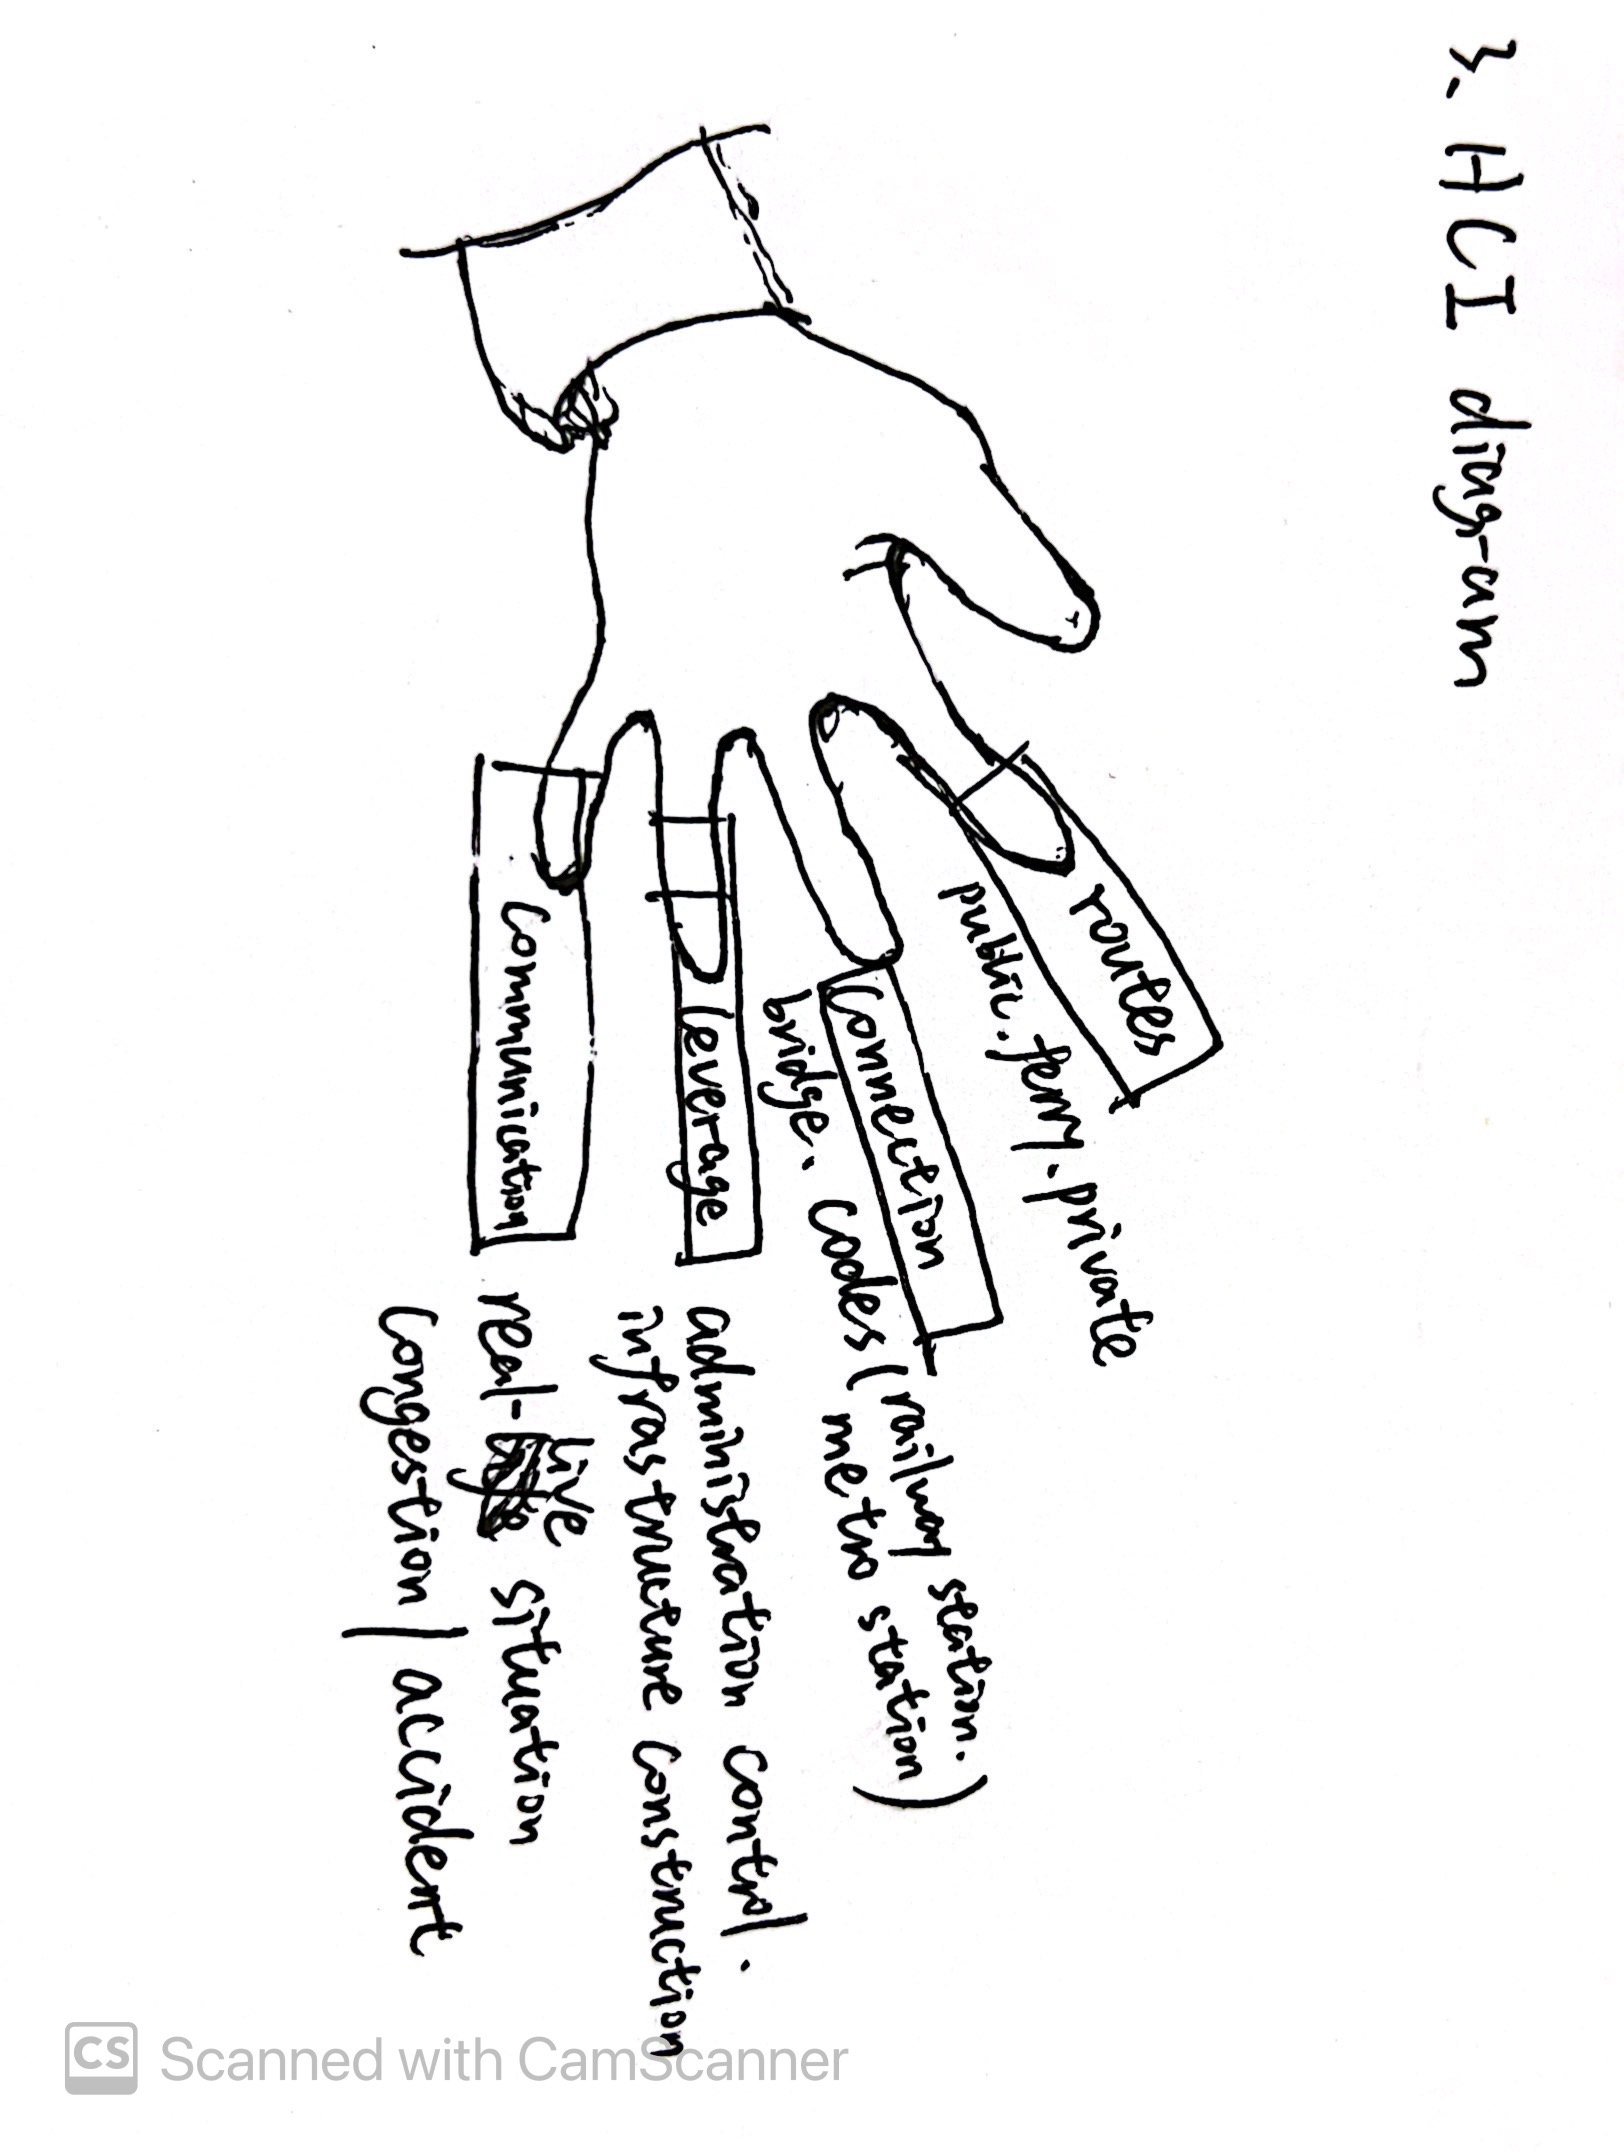 3. HCI diagram
routes
public. semi. private
Connection
bridge. codes (railway station.
metro station)
leverage
administration control.
infrastructure construction
Communication
real-live situation
Congestion / accident
CS Scanned with CamScanner